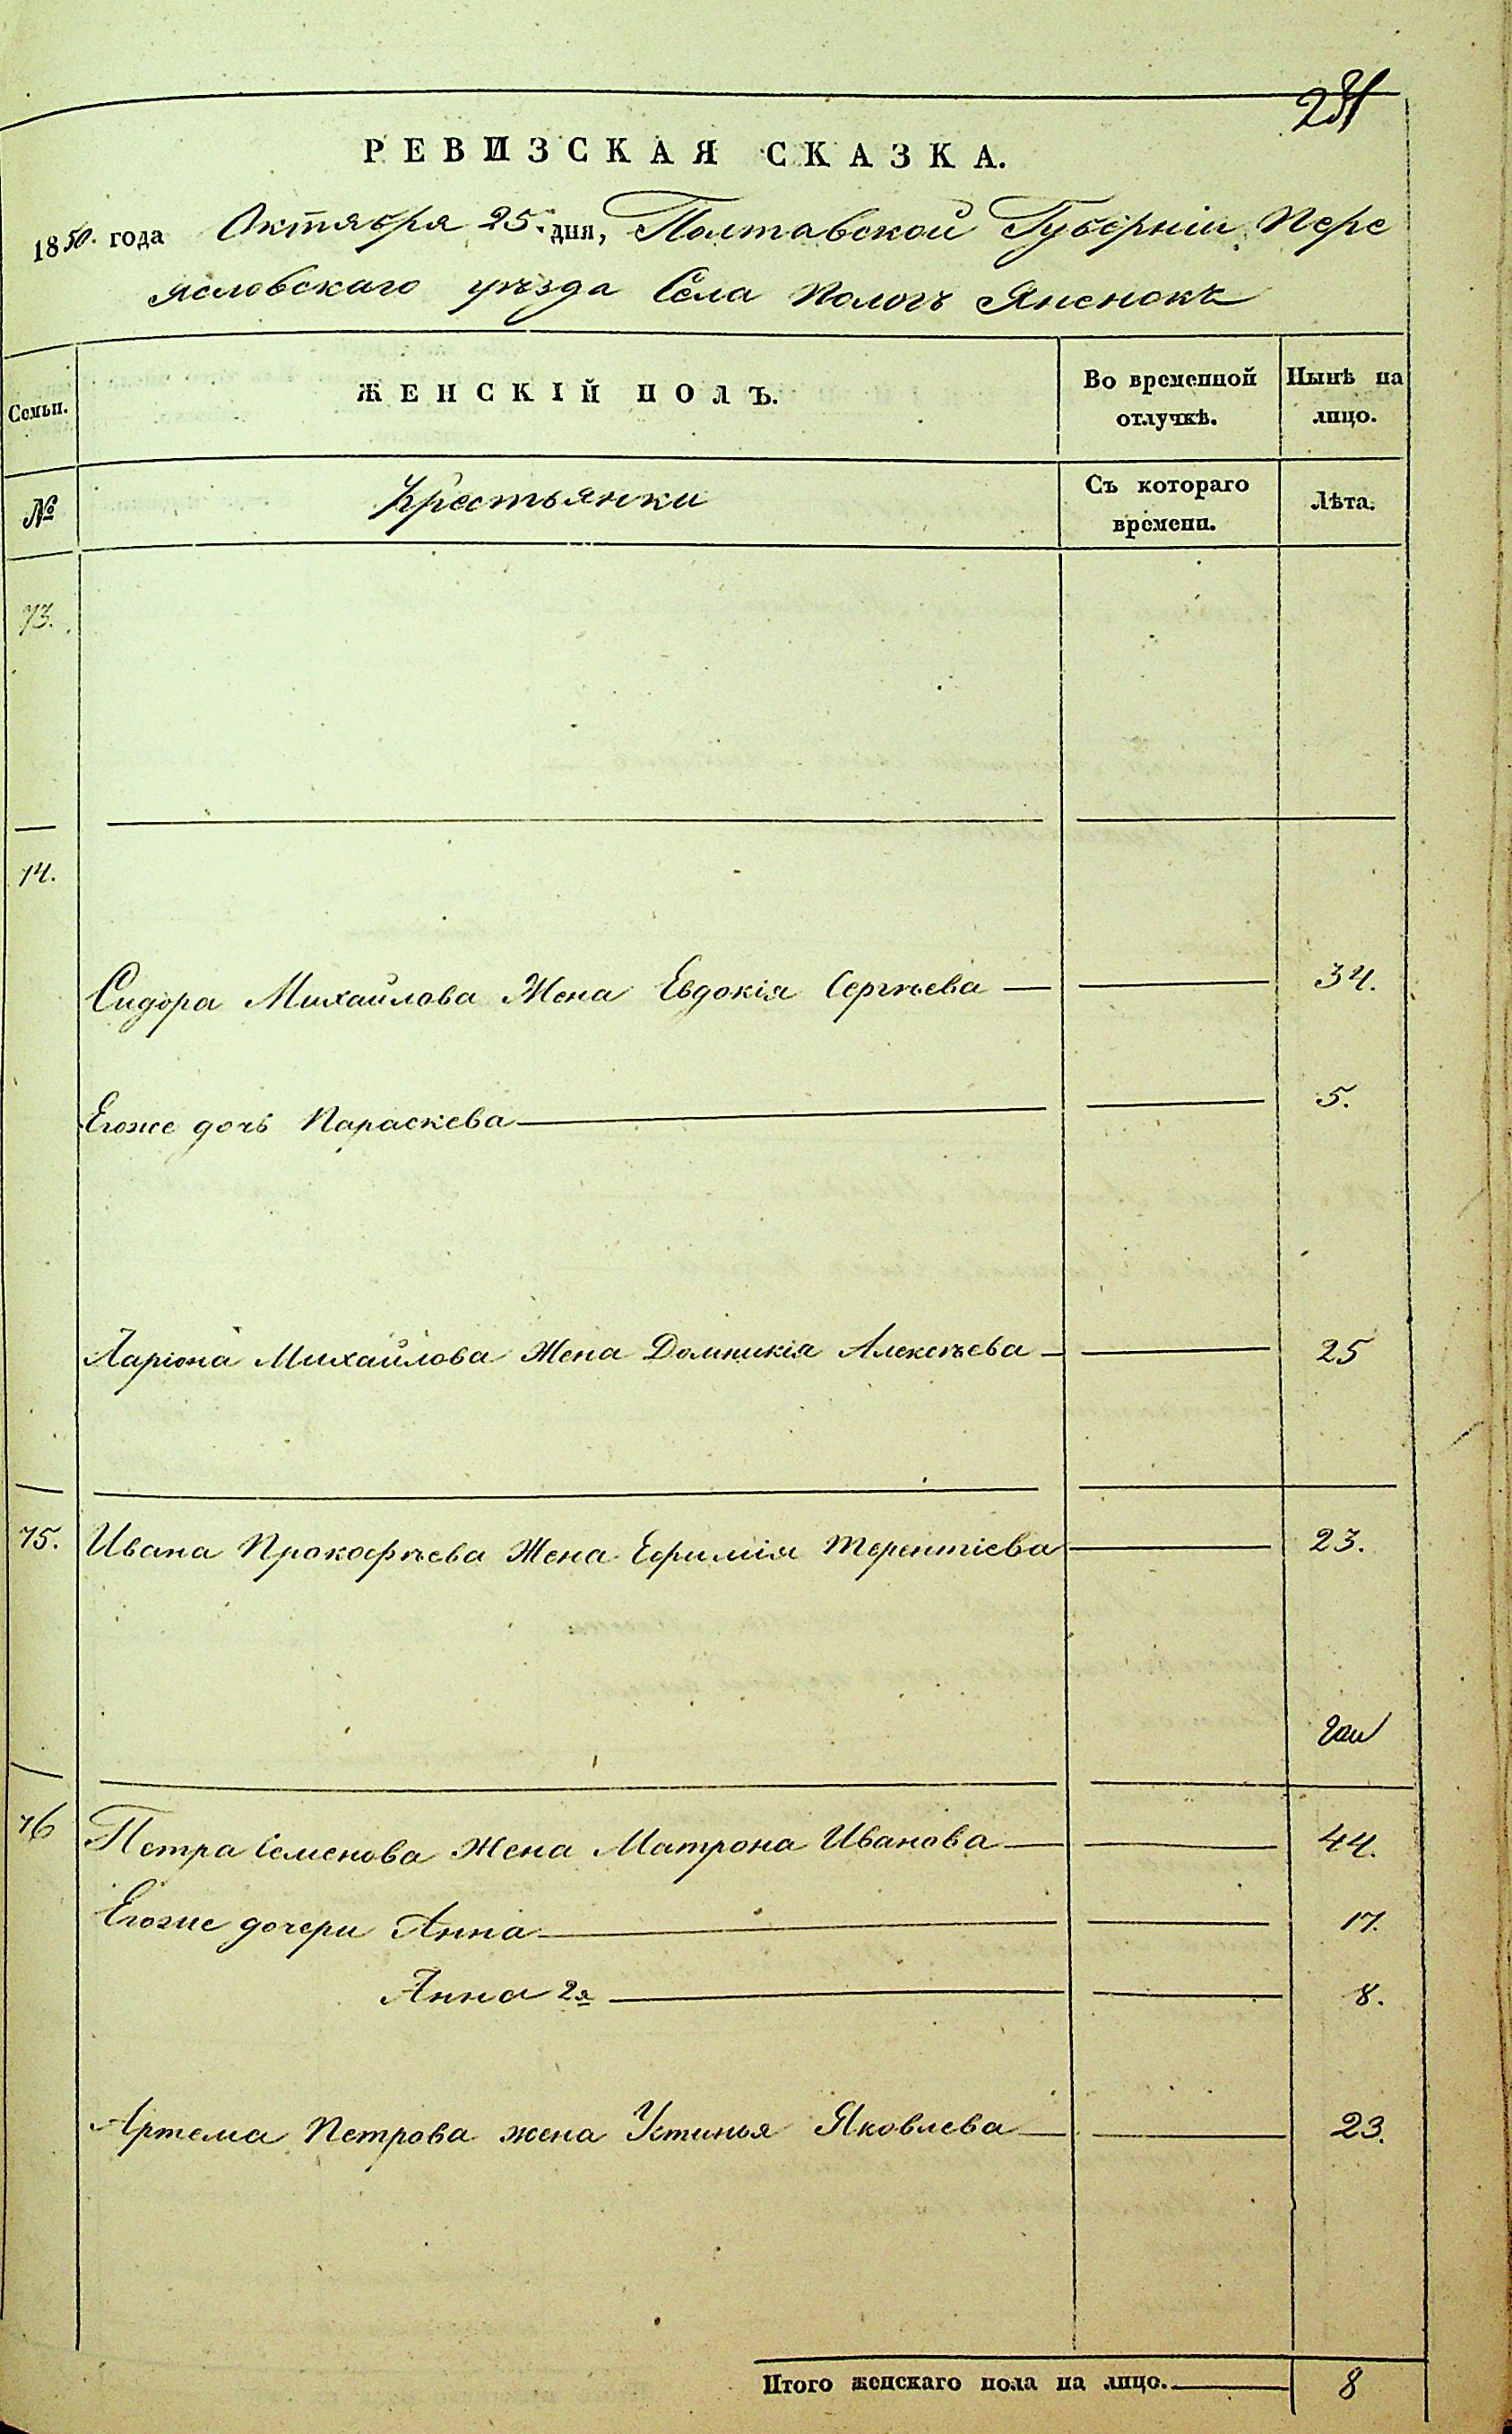 231
РЕВИЗСКАЯ СКАЗКА.
1850. года Октября 25. дня, Полтавской Губерніи Пере
яславскаго уѣзда Села Пологъ Яненокъ
Семьи. ЖЕНСКІЙ ПОЛЪ. Во временной отлучкѣ. Нынѣ на лицо.
№ Крестьянки Съ котораго времени. Лѣта.
73.
74.
Сидора Михайлова Жена Евдокія Сергѣева 34.
Егоже дочь Параскева 5.
Ларіона Михайлова Жена Домникія Алексѣева 25
75. Ивана Прокофѣева Жена Ефимія Терентіева 23.
76 Петра Семенова Жена Матрона Иванова 44.
Егоже дочери Анна 17.
Анна 2я 8.
Артема Петрова жена Устинья Яковлева 23.
Итого женскаго пола на лицо. 8